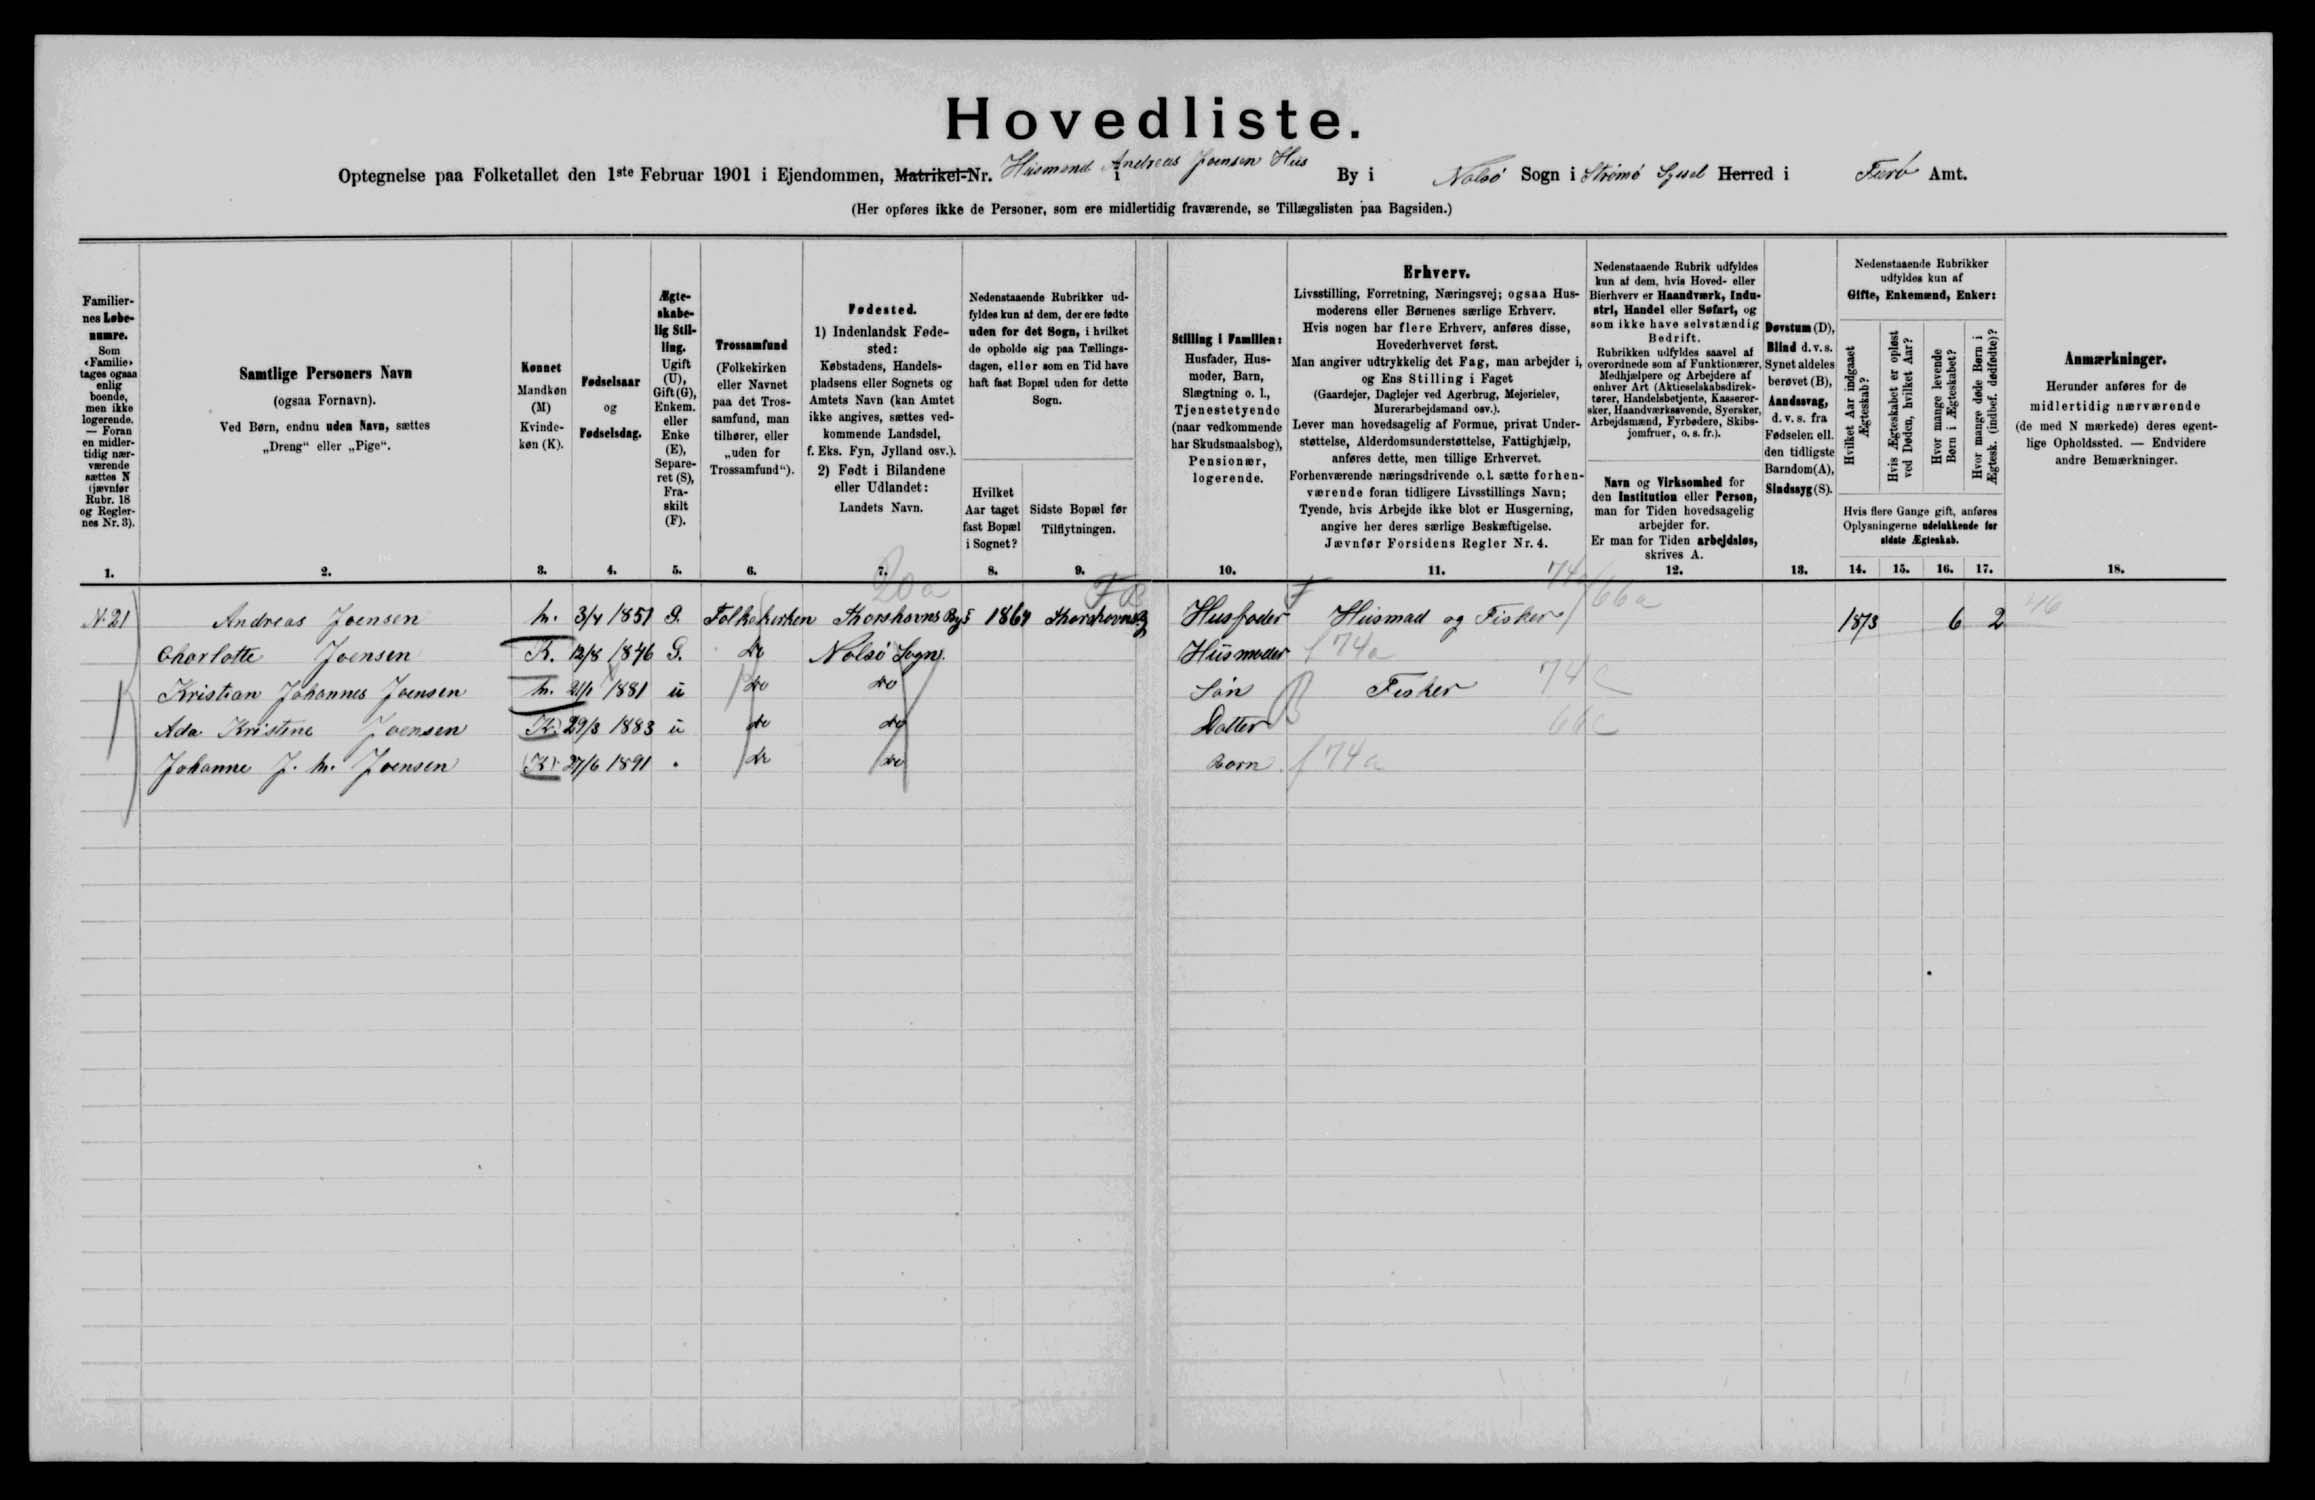 Hovedliste.
Optegnelse paa Folketallet den 1ste Februar 1901 i Ejendommen, Matrikel-Nr. Husmand Andreas Joensen Hus i By i Nolsö Sogn i Strömö Syssel Herred i Færö Amt.
(Her opføres ikke de Personer, som ere midlertidig fraværende, se Tillægslisten paa Bagsiden.)
Familiernes Løbenumre.
Som «Familie» tages ogsaa enlig boende, men ikke logerende. — Foran en midlertidig nærværende sættes N (jævnfør Rubr. 18 og Reglernes Nr. 3).
1.
Samtlige Personers Navn
(ogsaa Fornavn).
Ved Børn, endnu uden Navn, sættes
„Dreng“ eller „Pige“.
2.
Kønnet
Mandkøn
(M)
Kvindekøn (K).
3.
Fødselsaar
og
Fødselsdag.
4.
Ægteskabelig Stilling.
Ugift (U), Gift (G), Enkem. eller Enke (E), Separeret (S), Fraskilt (F).
5.
Trossamfund
(Folkekirken eller Navnet paa det Trossamfund, man tilhører, eller „uden for Trossamfund“).
6.
Fødested.
1) Indenlandsk Fødested:
Købstadens, Handelspladsens eller Sognets og Amtets Navn (kan Amtet ikke angives, sættes vedkommende Landsdel, f. Eks. Fyn, Jylland osv.).
2) Født i Bilandene eller Udlandet:
Landets Navn.
7.
Nedenstaaende Rubrikker udfyldes kun af dem, der ere fødte uden for det Sogn, i hvilket de opholde sig paa Tællingsdagen, eller som en Tid have haft fast Bopæl uden for dette Sogn.
Hvilket Aar taget fast Bopæl i Sognet?
8.
Sidste Bopæl før Tilflytningen.
9.
Stilling i Familien:
Husfader, Husmoder, Barn, Slægtning o. l., Tjenestetyende (naar vedkommende har Skudsmaalsbog), Pensionær, logerende.
10.
Erhverv.
Livsstilling, Forretning, Næringsvej; ogsaa Husmoderens eller Børnenes særlige Erhverv.
Hvis nogen har flere Erhverv, anføres disse, Hovederhvervet først.
Man angiver udtrykkelig det Fag, man arbejder i, og Ens Stilling i Faget
(Gaardejer, Daglejer ved Agerbrug, Mejerielev, Murerarbejdsmand osv.).
Lever man hovedsagelig af Formue, privat Understøttelse, Alderdomsunderstøttelse, Fattighjælp, anføres dette, men tillige Erhvervet.
Forhenværende næringsdrivende o. l. sætte forhenværende foran tidligere Livsstillings Navn; Tyende, hvis Arbejde ikke blot er Husgerning, angive her deres særlige Beskæftigelse.
Jævnfør Forsidens Regler Nr. 4.
11.
Nedenstaaende Rubrik udfyldes kun af dem, hvis Hoved- eller Bierhverv er Haandværk, Industri, Handel eller Søfart, og som ikke have selvstændig Bedrift.
Rubrikken udfyldes saavel af overordnede som af Funktionærer, Medhjælpere og Arbejdere af enhver Art (Aktieselskabsdirektører, Handelsbetjente, Kasserersker, Haandværkssvende, Syersker, Arbejdsmænd, Fyrbødere, Skibsjomfruer, o. s. fr.).
Navn og Virksomhed for den Institution eller Person, man for Tiden hovedsagelig arbejder for.
Er man for Tiden arbejdsløs, skrives A.
12.
Døvstum (D), Blind d. v. s. Synet aldeles berøvet (B), Aandssvag, d. v. s. fra Fødselen ell. den tidligste Barndom (A), Sindssyg (S).
13.
Nedenstaaende Rubrikker udfyldes kun af
Gifte, Enkemænd, Enker:
Hvilket Aar indgaaet Ægteskab?
Hvis Ægteskabet er opløst ved Døden, hvilket Aar?
Hvor mange levende Børn i Ægteskabet?
Hvor mange døde Børn i Ægtesk. (indbef. dødfødte)?
Hvis flere Gange gift, anføres Oplysningerne udelukkende for sidste Ægteskab.
14. 15. 16. 17.
Anmærkninger.
Herunder anføres for de midlertidig nærværende (de med N mærkede) deres egentlige Opholdssted. — Endvidere andre Bemærkninger.
18.
20a FB 74a/66a
N. 21 Andreas Joensen M. 3/4 1851 G. Folkekirken Thorshavns By 1864 Thorshavns By Husfader Husmad og Fisker 1873 6 2 46
Charlotte Joensen K. 12/8 1846 G. do Nolsö Sogn. Husmoder 74a
Kristian Johannes Joensen M. 21/1 1881 u do do Sön Fisker 74c
Ada Kristine Joensen K. 29/3 1883 u do do Datter 66c
Johanne J. M. Joensen K. 27/6 1891 . do do Barn 74a